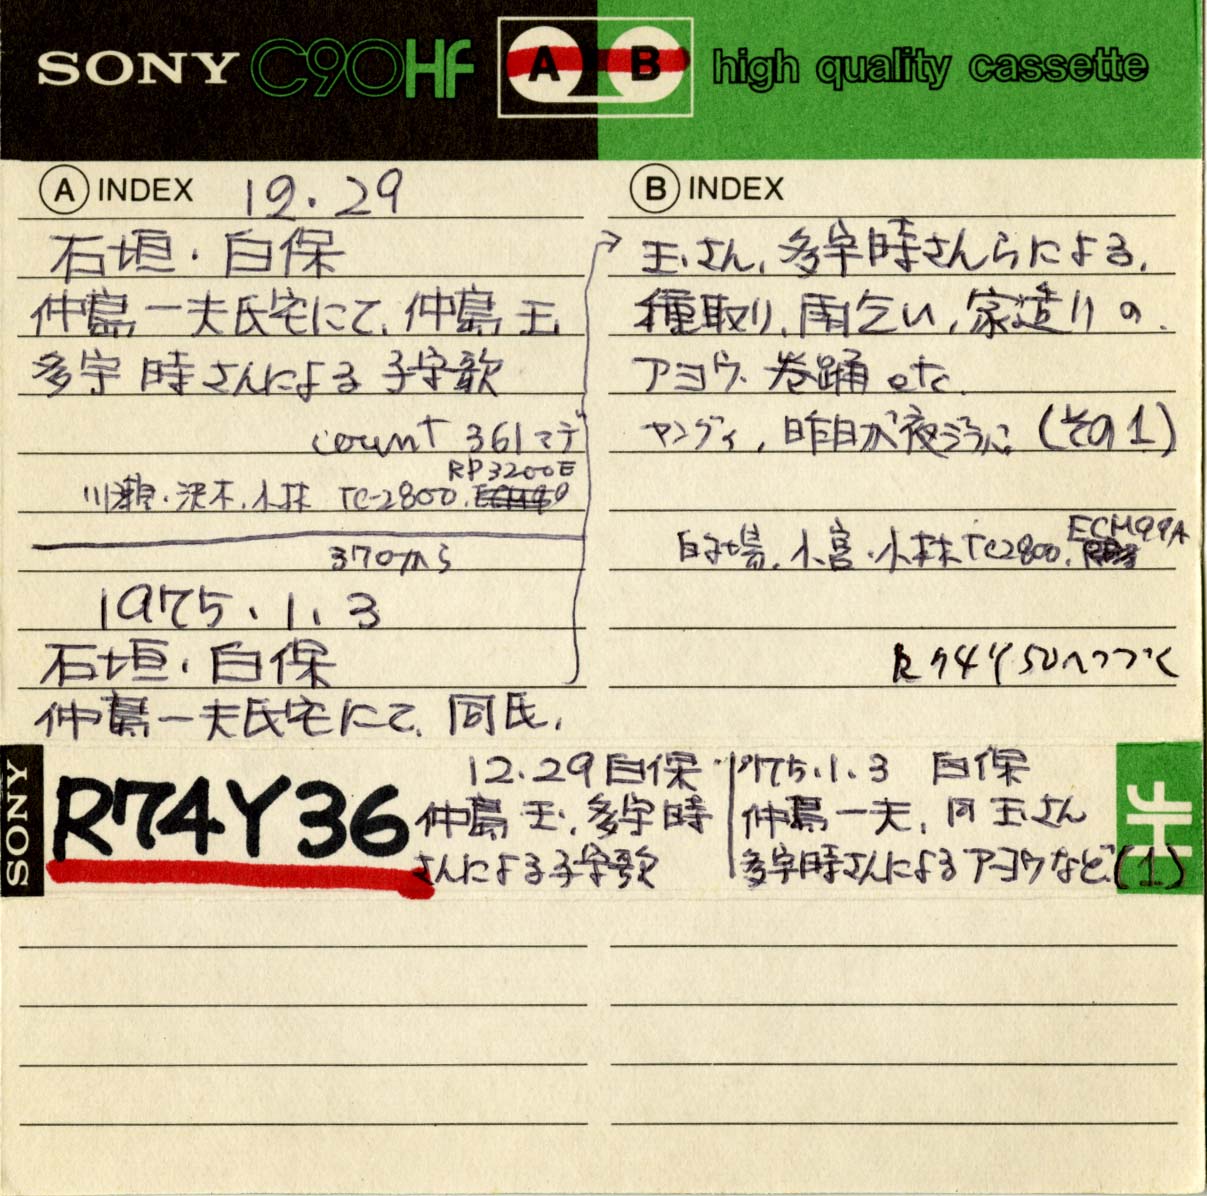 SONY C90HF A B high quality cassette
A INDEX 12.29
石垣・白保
仲島一夫氏宅にて、仲島 玉、
多宇 時さんによる 子守歌
count 361マデ
RP3200E
川瀬・沢木、小林 TC-2800.
370から
1975.1.3
石垣・白保
仲島一夫氏宅にて、同氏、
B INDEX
玉さん、多宇時さんらによる、
種取り、雨乞い、家造りの、
アヨウ、巻踊 etc.
ヤングティ、昨日が夜 (その1)
ECM99A
的場、小宮・小林 TC2800.
R74Y50へつづく
SONY
R74Y36
12.29 白保
仲島 玉、多宇時
さんによる子守歌
1975.1.3 白保
仲島一夫、同 玉さん
多宇時さんによるアヨウなど(1)
HF